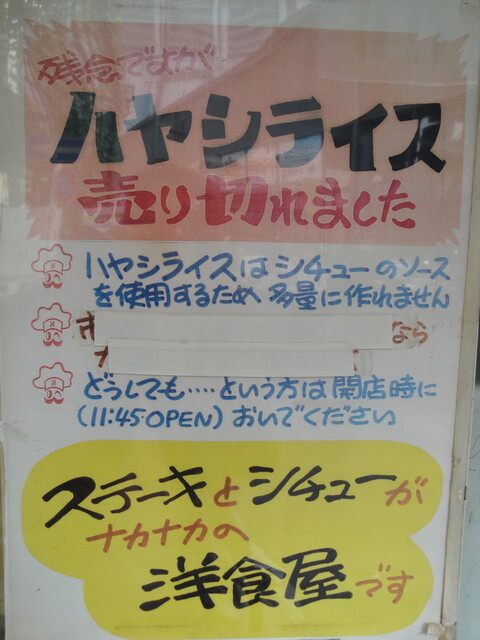 残念ですが
ハヤシライス
売り切れました
ハヤシライスはシチューのソース
を使用するため 多量に作れません
なら
どうしても‥‥という方は開店時に
(11:45 OPEN) おいでください
ステーキとシチューが
ナカナカの
洋食屋です